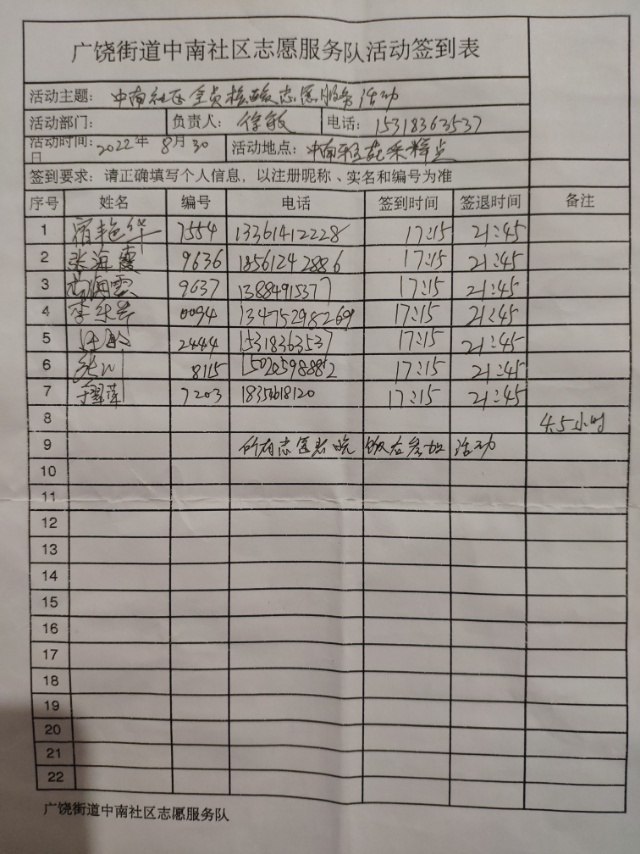 广饶街道中南社区志愿服务队活动签到表
活动主题：中南社区全员核酸志愿服务活动
活动部门： 负责人：徐敏 电话：15318363537
活动时间：2022年8月30日 活动地点：中南 采样点
签到要求：请正确填写个人信息，以注册昵称、实名和编号为准
序号 姓名 编号 电话 签到时间 签退时间 备注
1 宿艳华 7554 13361412228 17:15 21:45
2 张海霞 9636 18561242886 17:15 21:45
3 尚海雲 9637 13884915377 17:15 21:45
4 0094 13475298269 17:15 21:45
5 2444 15318363537 17:15 21:45
6 张川 8115 15020598882 17:15 21:45
7 于翠萍 7203 17:15 21:45
8 4.5小时
9 所有志愿者晚饭后参加活动
10
11
12
13
14
15
16
17
18
19
20
21
22
广饶街道中南社区志愿服务队